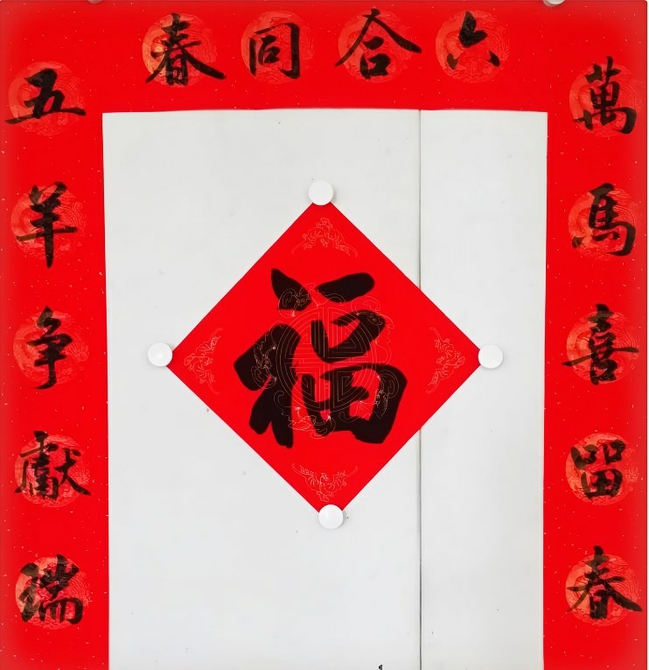 六合同春
萬馬喜留春
五羊争獻瑞
福